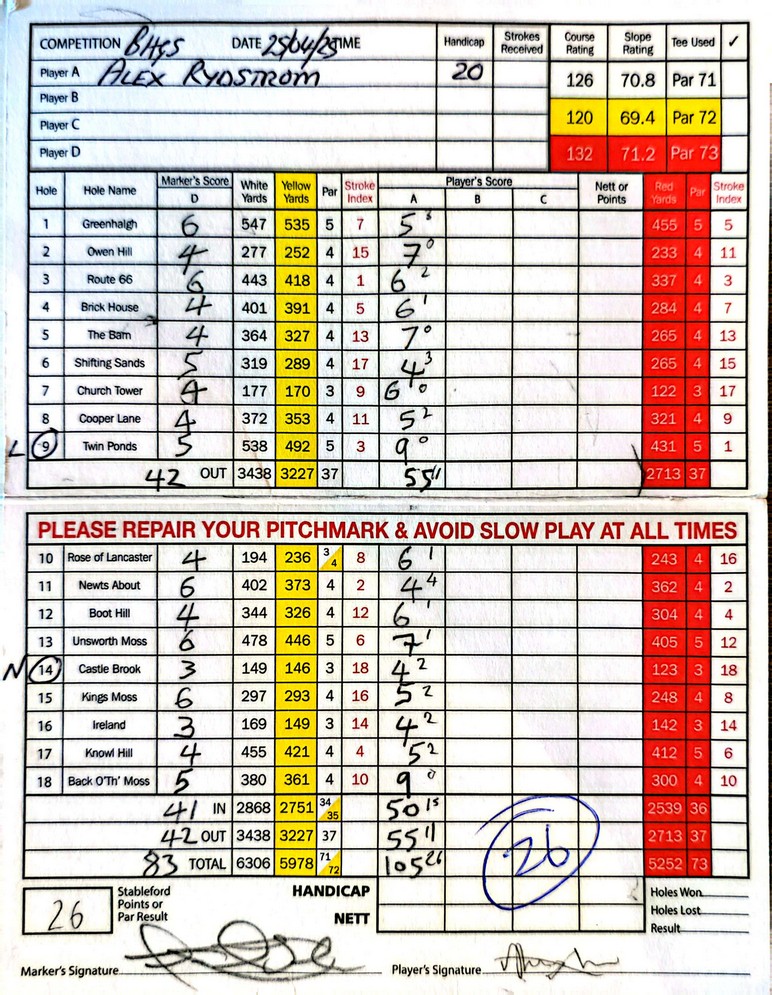 COMPETITION BHGS DATE 25/04/25 TIME Handicap Strokes Received Course Rating Slope Rating Tee Used ✓
Player A ALEX RYDSTROM 20 126 70.8 Par 71
Player B
Player C 120 69.4 Par 72
Player D 132 71.2 Par 73
Hole Hole Name Marker's Score D White Yards Yellow Yards Par Stroke Index Player's Score A B C Nett or Points Red Yards Par Stroke Index
1 Greenhalgh 6 547 535 5 7 5 455 5 5
2 Owen Hill 4 277 252 4 15 7 0 233 4 11
3 Route 66 6 443 418 4 1 6 2 337 4 3
4 Brick House 4 401 391 4 5 6 1 284 4 7
5 The Barn 4 364 327 4 13 7 0 265 4 13
6 Shifting Sands 5 319 289 4 17 4 3 265 4 15
7 Church Tower 4 177 170 3 9 6 0 122 3 17
8 Cooper Lane 4 372 353 4 11 5 2 321 4 9
L 9 Twin Ponds 5 538 492 5 3 9 0 431 5 1
42 OUT 3438 3227 37 55 11 2713 37
PLEASE REPAIR YOUR PITCHMARK & AVOID SLOW PLAY AT ALL TIMES
10 Rose of Lancaster 4 194 236 3 4 8 6 1 243 4 16
11 Newts About 6 402 373 4 2 4 4 362 4 2
12 Boot Hill 4 344 326 4 12 6 1 304 4 4
13 Unsworth Moss 6 478 446 5 6 7 1 405 5 12
N 14 Castle Brook 3 149 146 3 18 4 2 123 3 18
15 Kings Moss 6 297 293 4 16 5 2 248 4 8
16 Ireland 3 169 149 3 14 4 2 142 3 14
17 Knowl Hill 4 455 421 4 4 5 2 412 5 6
18 Back O'Th' Moss 5 380 361 4 10 9 0 300 4 10
41 IN 2868 2751 34 35 50 15 2539 36
42 OUT 3438 3227 37 55 11 2713 37
83 TOTAL 6306 5978 71 72 105 26 26 5252 73
26 Stableford Points or Par Result HANDICAP NETT Holes Won
Holes Lost
Result
Marker's Signature Player's Signature